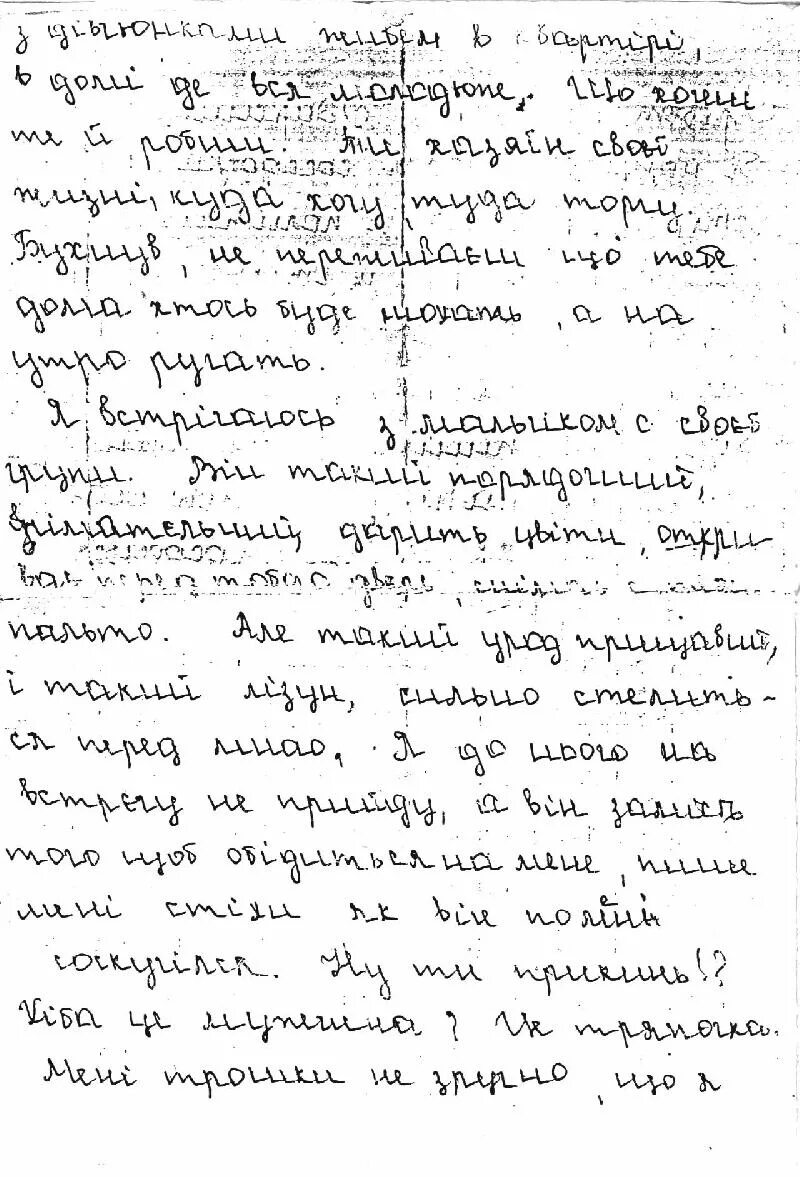 з дівчонками живем в квартірі,
в домі де вся молодьож. Що хочеш
те й робиш. Ти хазяін своєї
жизні, куда хочу туда торчу.
Бухнув, не переживаєш що тебе
дома хтось буде нюхать, а на
утро ругать.
Я встрічаюсь з мальчиком с своєї
групи. Він такий порядочний,
внімательний, дарить цвіти, откри-
ває перед тобою двері,
пальто. Але такий урод прищавий,
і такий лізун, сильно стелить-
ся перед мною. Я до нього на
встречу не прийду, а він замість
того щоб обідиться на мене, пише
мені стіхи як він по мені
соскучілся. Ну ти прикинь!?
Хіба це мужчина? Це тряпочка.
Мені трошки не зручно, що я